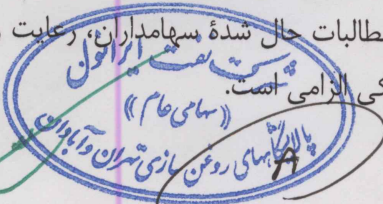 مطالبات حال شدهٔ سهامداران، رعایت
الزامی است.
شرکت نفت ایرانول
«(سهامی عام)»
پالایشگاههای روغن سازی تهران و آبادان
A